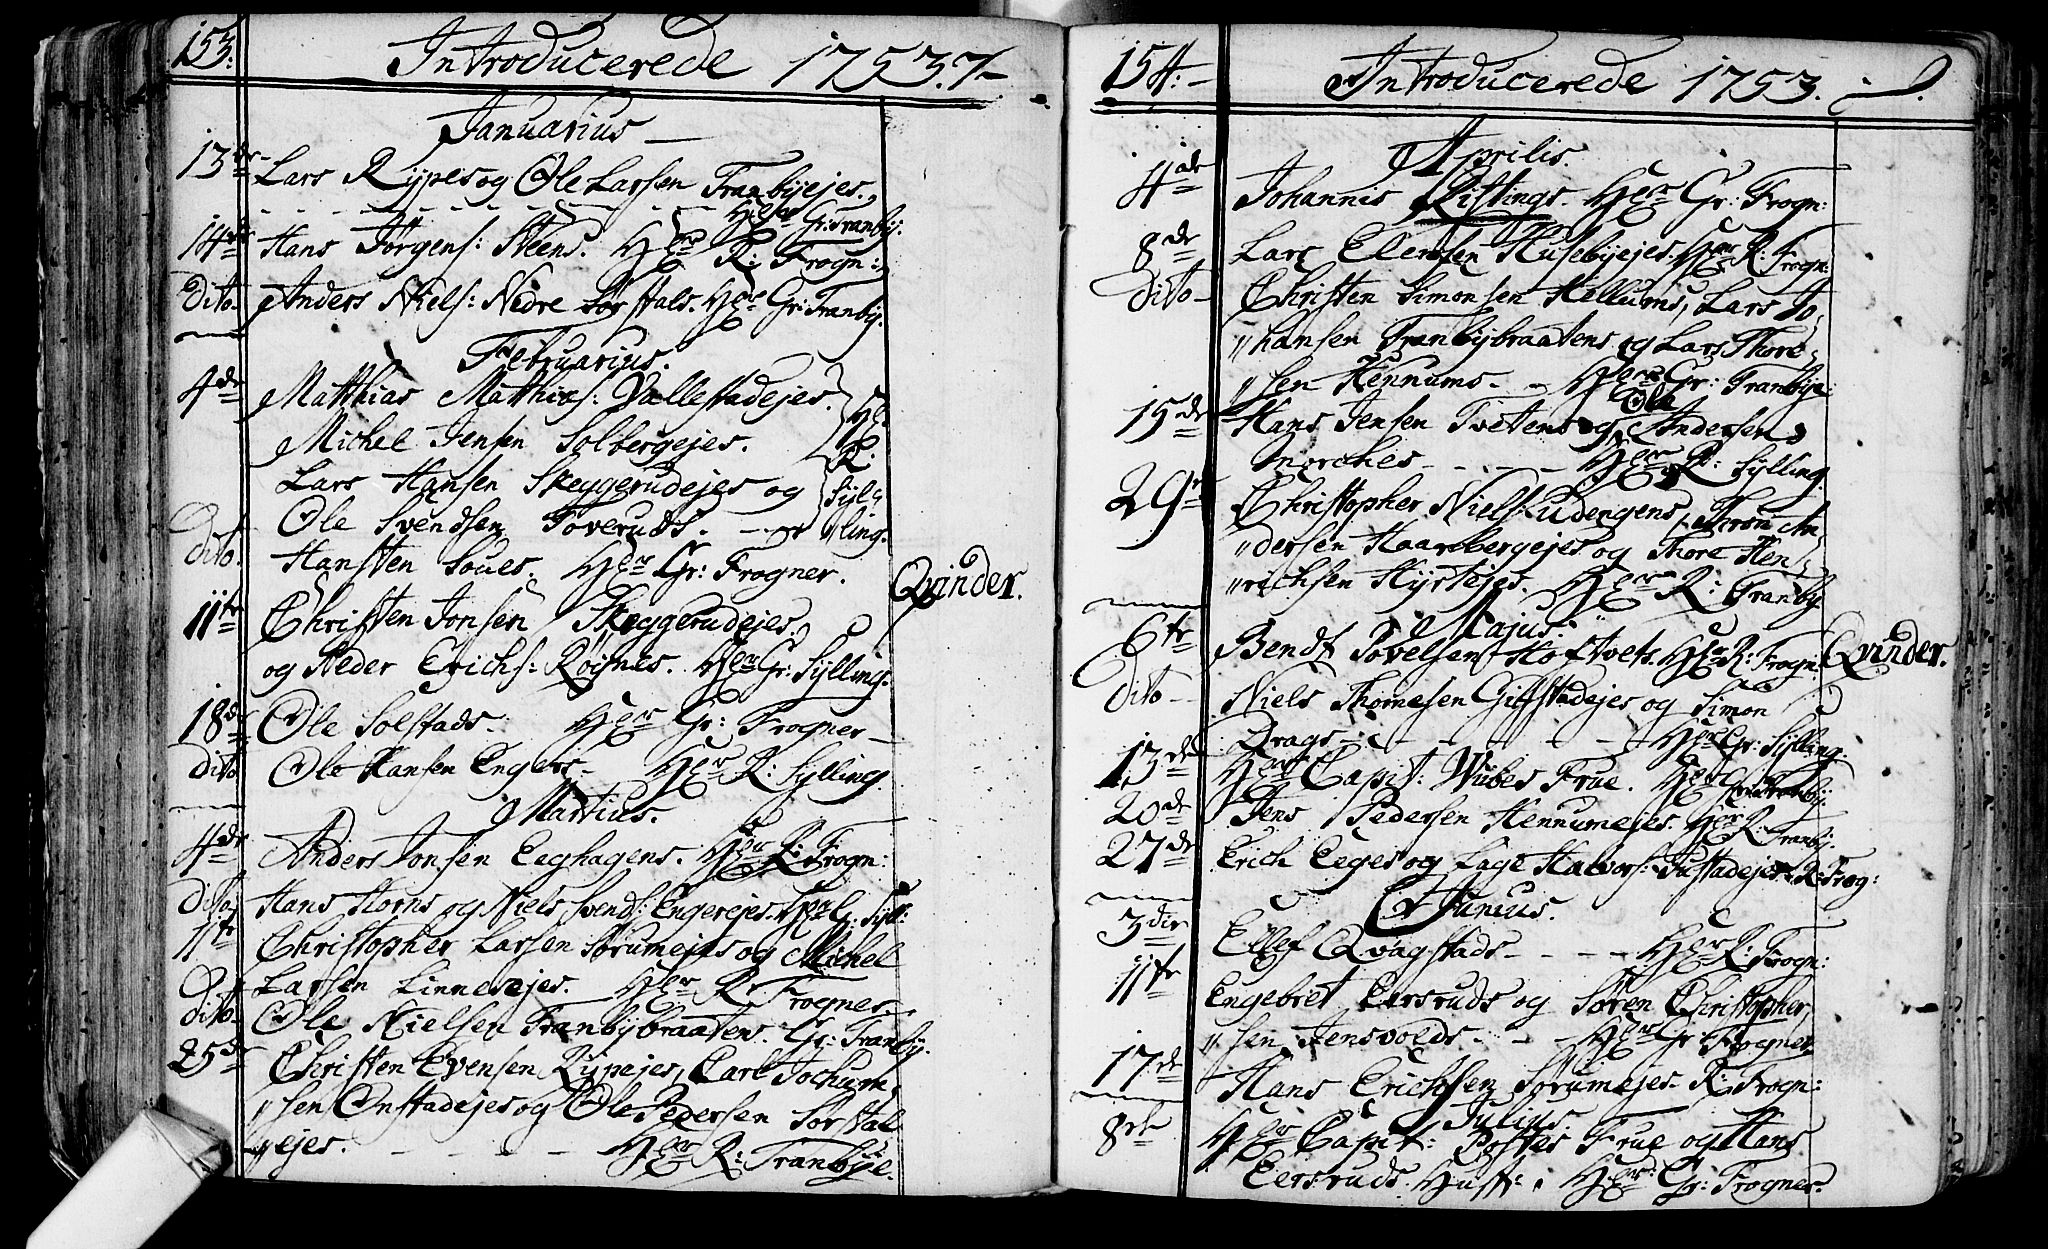 153.
Introducerede 1753.
Januarius
13de Lars Rypes og Ole Larsen Tranbyejes,
Her Gr: Tranby.
14de Hans Jørgens: Steens. Her R: Frogn:
dito Anders Niels: Nedre Sørstals. Her Gr: Tranby.
Februarius.
4de Matthias Matthies: Vallestadejes.
Michel Jensen Solbergejes.
Lars Hansen Skeggerudejes og
Ole Svendsen ToverudS.
Hr. R. Syl=
ling.
Dito. Hansten Soues. Her Gr: Frogner.
Qvinder.
11te Christen Jonsen Skeggerudejes.
og Peder Erichs: Røignes. Her Gr: Sylling.
18de Ole Solstads. Her Gr: Frogner
dito Ole Hansen Engers. Her R: Sylling.
Martius.
4de Anders Jonsen Eeghagens. Her R: Frogn:
dito Hans Horns og Niels Svends: Engerejes. Her G: Syll:
11te Christopher Larsen Sørumejes og Michel
Larsen Linnesejes. Her R: Frogner.
dito Ole Nielsen Tranbybraatens. Gr: Tranby.
25de Christen Evensen Rypejes, Carl Jochum,
"sen Onstadejes og Ole Pedersen Sørstal
"ejes. Her R: Tranbye.
154.
Introducerede 1753.
Aprilis.
4de Johannis Gistings. Her Gr: Frogn:
8de Lars Elersen Husebyejes. Her R: Frogn:
dito Christen Simonsen Hellums, Lars Jo,
"hansen Tranbybraatens og Lars Thore
"sen Hennums. Her Gr: Tranbye.
15de Hans Jensen Tvetens og Ole Andersen
Mørches Her R: Sylling.
29de Christopher Niels: Udengens, Thron An,
"dersen Haarbergejes og Thore Hen,
"richsen Hyrtejes. Her R: Tranby.
Majus.
6te Bendt Povelsen Hoftvets. Her R: Frogn:
Qvinder.
dito Niels Thomesen Gilfstadejes og Simon
Drags Her Gr: Sylling.
13de Her Capit: Wibes Frue. Her Gr: Tranby.
20de Jens Pedersen Hennumejes. Her R: Tranby.
27de Erich Eeges og Lage Halvors: Tufstadejes. R: Frog:
Junius.
3die Ellef Qvagstads Her R: Frogn:
11te Engebret Eersruds og Søren Christopher,
"sen Jensvolds Her Gr: Frogner.
17de Hans Erichsen Sørumejes. R: Frogn:
Julius.
8de Her Capit: Frue og Hans
Eersruds Hust: i Her Gr: Frogner.